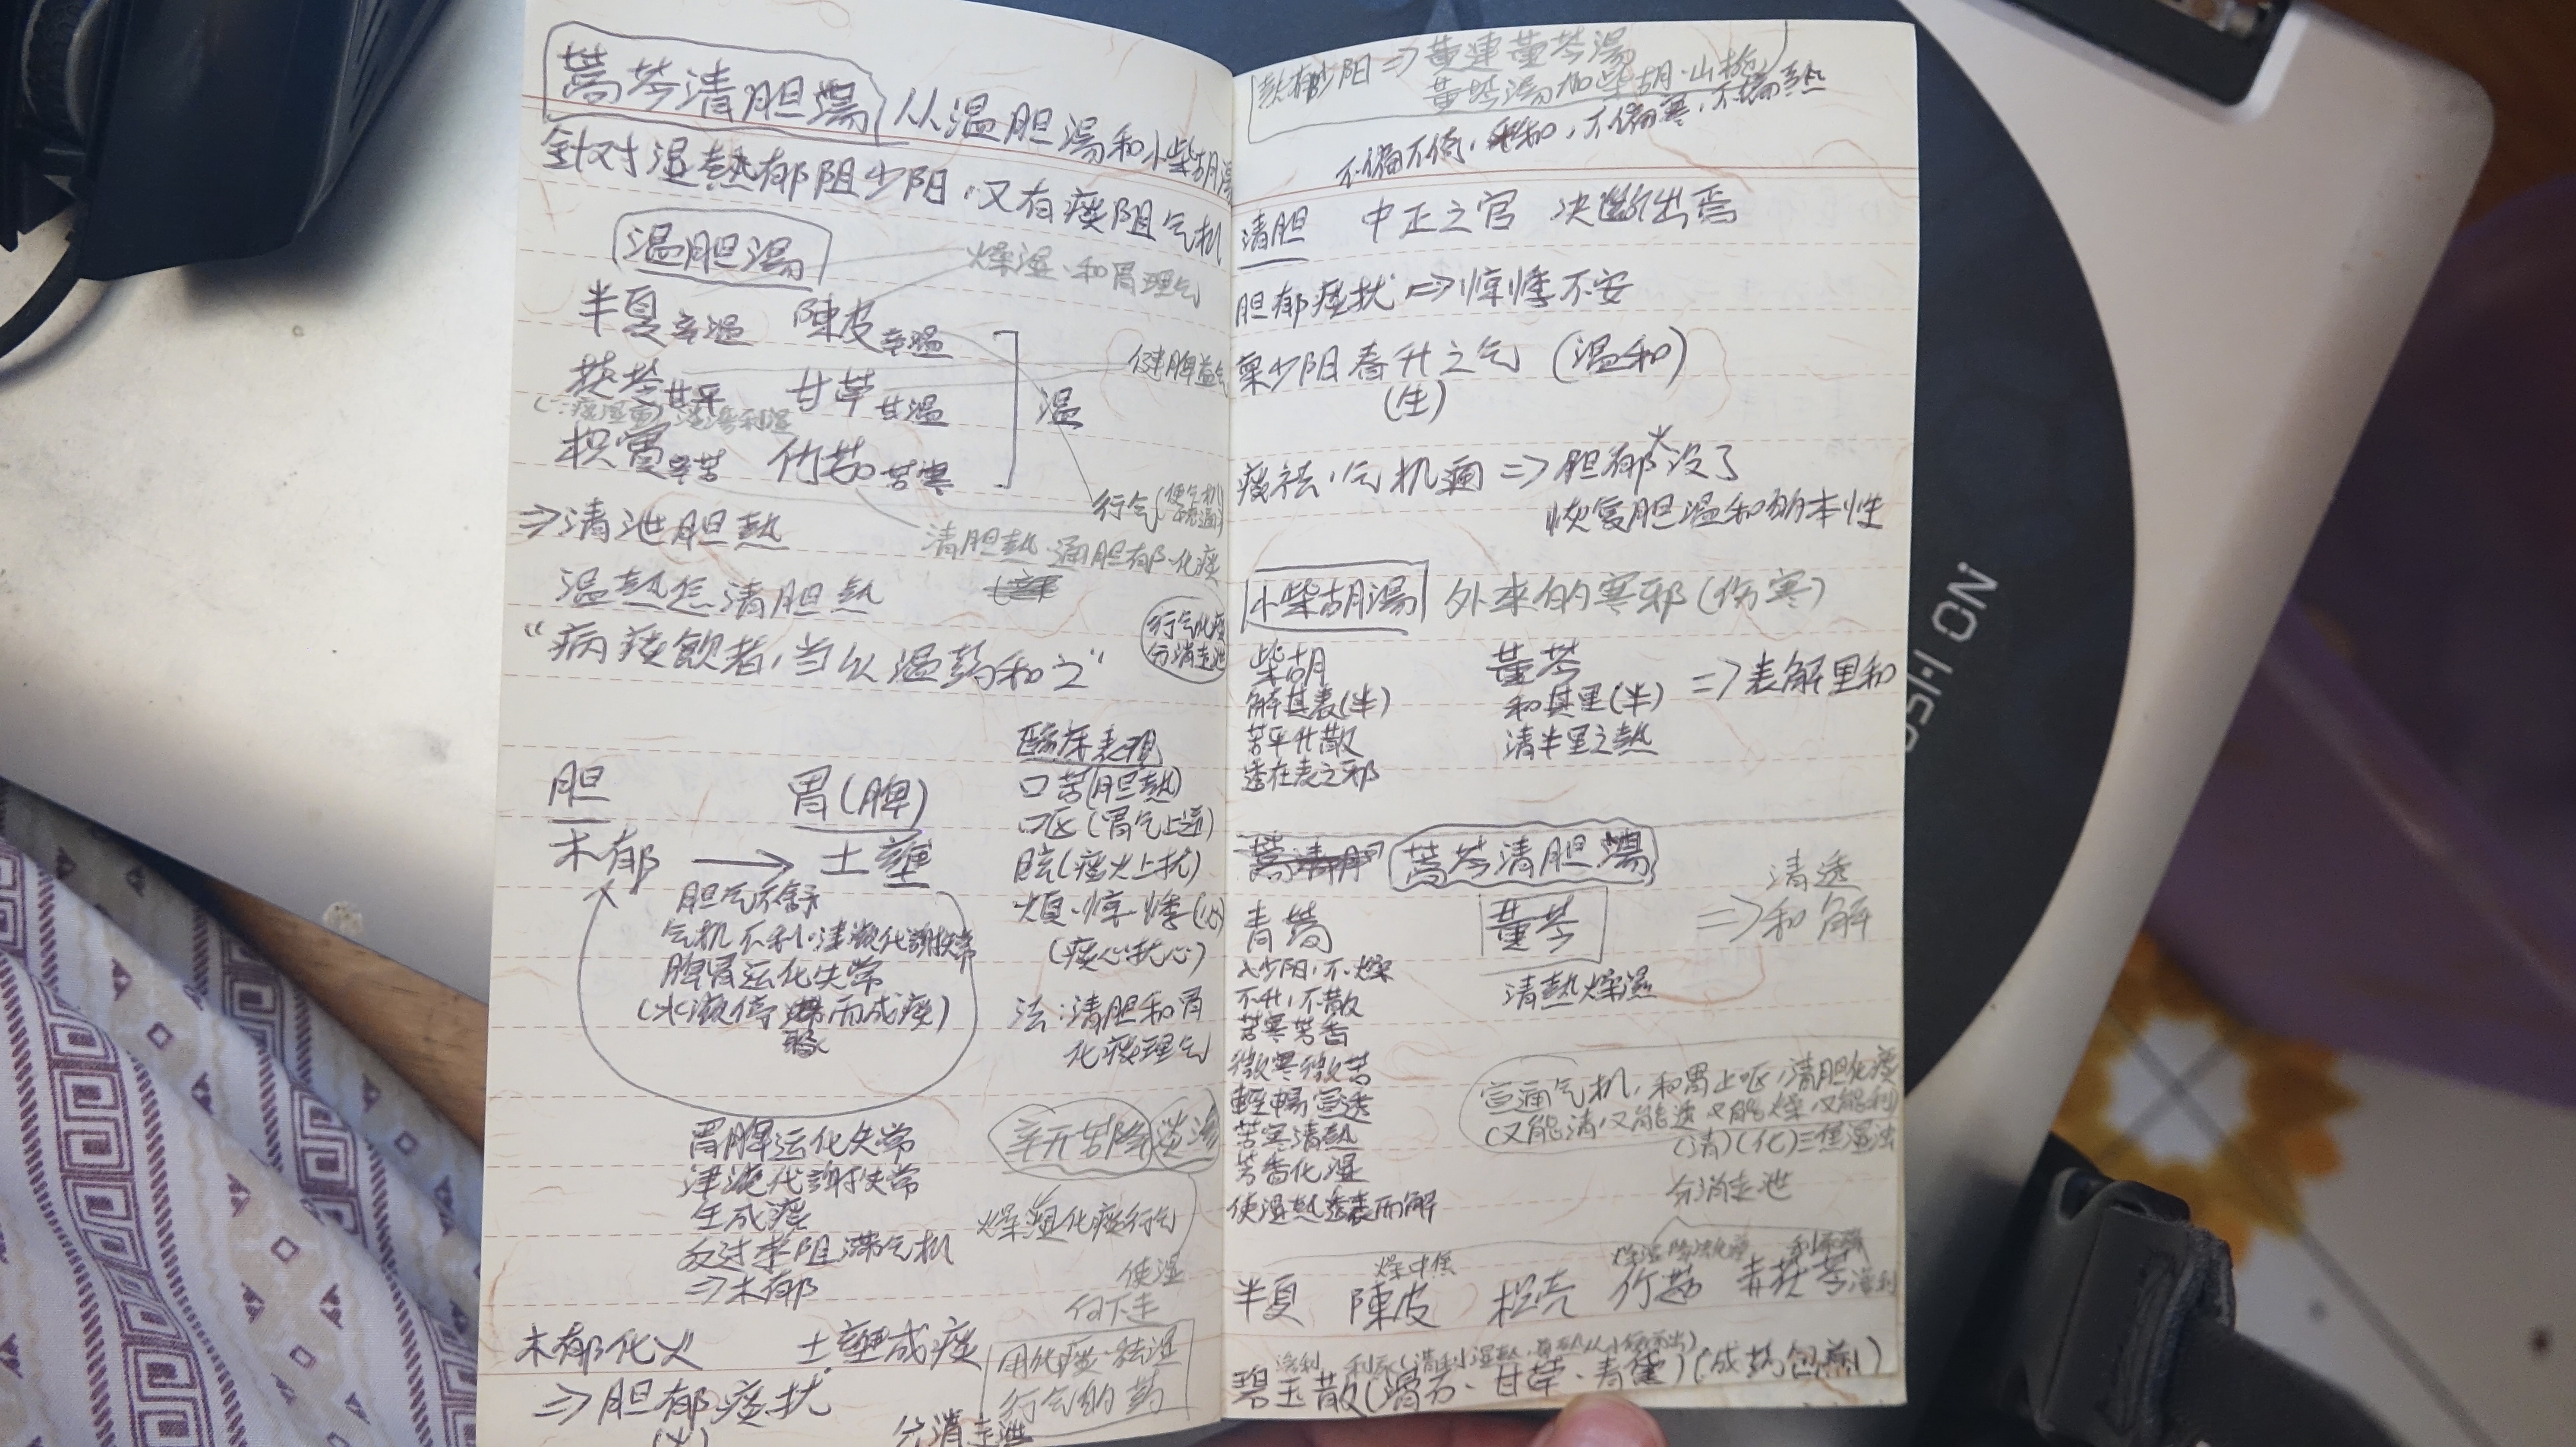 蒿芩清胆湯 从温胆湯和小柴胡湯
針对湿熱郁阻少阳，又有痰阻气机
温胆湯
燥湿、和胃理气
半夏辛温 陳皮辛温
健脾益气
茯苓甘平 甘草甘温
温
(∵痰湿重) 淡渗利湿
枳實辛苦 竹茹苦寒
行气(使气机疏通)
⇒清泄胆熱
清胆熱、通胆郁、化痰
温熱怎清胆熱
行气化痰
分消走泄
“病痰飲者，当以温葯和之”
胆 胃(脾)
木郁 → 土壅
胆气不舒
气机不利、津液代謝失常
脾胃运化失常
(水液停滞而成痰)
胃脾运化失常
津液代謝失常
生成痰
反过来阻滞气机
⇒木郁
木郁化火 土壅成痰
⇒胆郁痰扰
(火)
臨床表現
口苦(胆熱)
呕(胃气上逆)
眩(痰火上扰)
烦、惊、悸(心)
(痰火扰心)
法：清胆和胃
化痰理气
辛开苦降淡渗
燥湿化痰行气
使湿
向下走
用化痰、祛湿
行气的葯
分消走泄
熱郁少阳⇒黄連黄芩湯
黄芩湯加柴胡、山栀
不偏不倚，和，不偏寒，不偏熱
清胆 中正之官 决斷出焉
胆郁痰扰⇒惊悸不安
稟少阳春升之气(温和)
(生)
痰祛，气机通⇒胆郁火没了
恢复胆温和的本性
小柴胡湯 外来的寒邪(伤寒)
柴胡 黄芩 ⇒表解里和
解其表(半) 和其里(半)
苦平升散 清半里之熱
透在表之邪
蒿芩清胆湯
青蒿 黄芩 ⇒清透
和解
入少阳，不燥 清熱燥湿
不升，不散
苦寒芳香
微寒微苦
輕暢宣透
苦寒清熱
芳香化湿
使湿熱透表而解
宣通气机，和胃止呕，清胆化痰
(又能清，又能透，又能燥，又能利)
(清)(化)三焦湿法
分消走泄
燥中焦
半夏 陳皮 枳壳 竹茹 赤茯苓渗利
碧玉散(滑石、甘草、青黛)(成葯包煎)